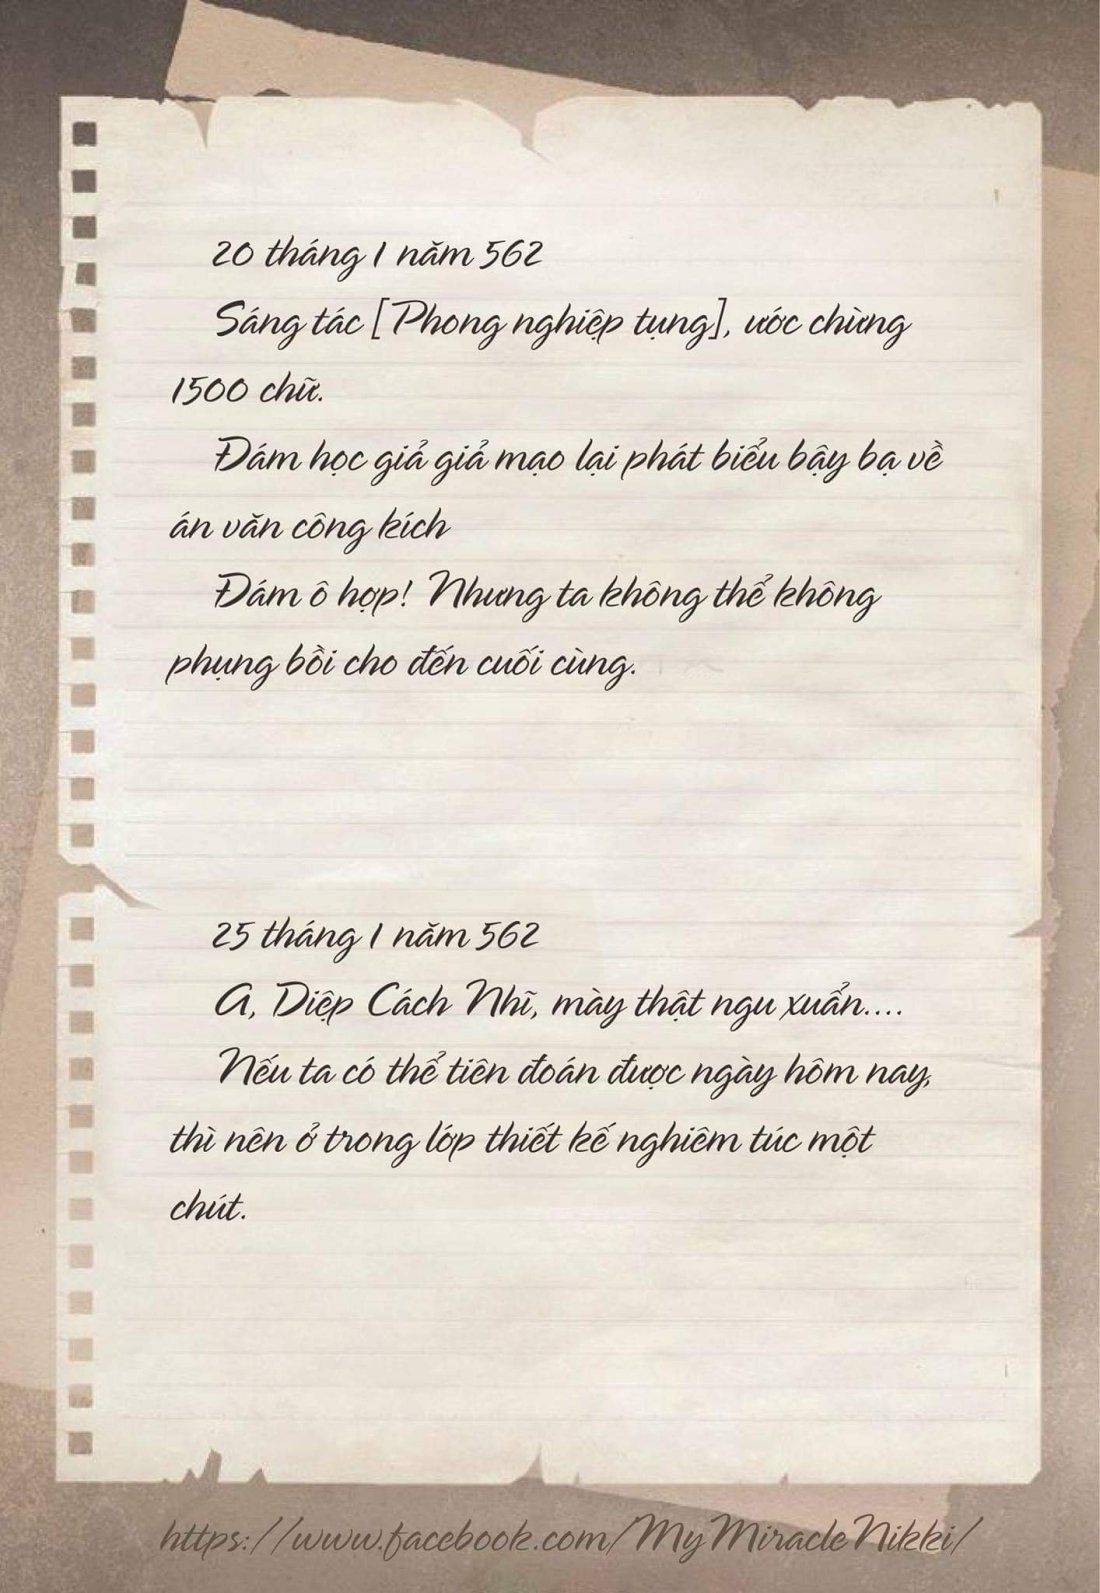 20 tháng 1 năm 562
Sáng tác [Phong nghiệp tụng], ước chừng
1500 chữ.
Đám học giả giả mạo lại phát biểu bậy bạ về
án văn công kích
Đám ô hợp! Nhưng ta không thể không
phụng bồi cho đến cuối cùng.
25 tháng 1 năm 562
A, Diệp Cách Nhĩ, mày thật ngu xuẩn....
Nếu ta có thể tiên đoán được ngày hôm nay,
thì nên ở trong lớp thiết kế nghiêm túc một
chút.
https://www.facebook.com/MyMiracleNikki/